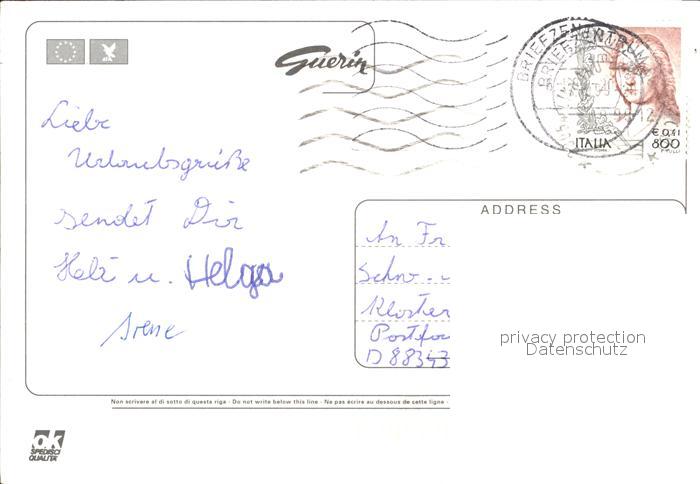 Guerin
BRIEFZENTRUM
BRIEFZENTRUM
€ 0,41
ITALIA 800
ADDRESS
Liebe
Urlaubsgrüße
sendet Dir
u. Helga
Irene
An Fr
Schw
Kloster
Postfac
D 88343
privacy protection
Datenschutz
Non scrivere al di sotto di questa riga - Do not write below this line - Ne pas écrire au dessous de cette ligne -
ok
SPEDISCI
QUALITÀ